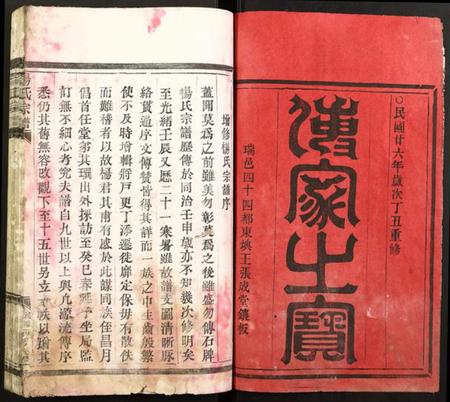 ○民國廿六年歲次丁丑重修
傳家之寶
瑞邑四十四都東垗王張成堂鐫板
增修楊氏宗譜序
蓋聞莫為之前雖美勿彰莫為之後雖盛勿傳石牌
楊氏宗譜歷傳於同治壬申歲亦不知幾次修明矣
至光緒壬辰又歷二十一寒暑雖故譜支圖清晰脈
絡貫通序文傳贊皆得其詳而一族之中生齒殷繁
使不及時增輯將戶更丁添遷徙靡定保毋有散佚
而難稽者乎以故楊君其甫有慮於此謀同族侄昌月
倡首任堂弟其環出外採訪至癸巳春延予坐局監
訂無不細心考究夫譜自九世以上與凡源流傳序
悉仍其舊無容改觀下至十五世另立 族以瑜其
楊氏宗譜